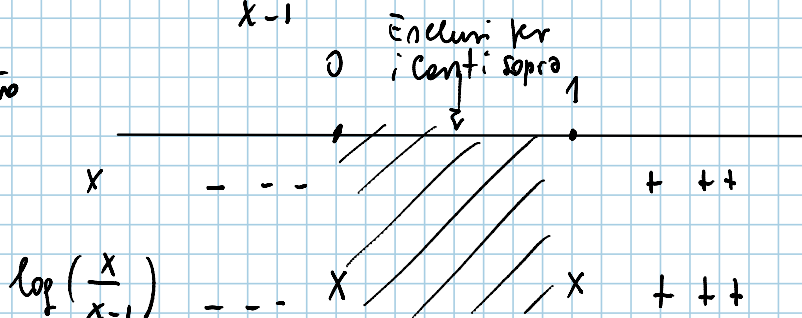 x-1
Esclusi per
0 i conti sopra
1
no
x - - - + + +
log(x/x-1) - - - x x + + +